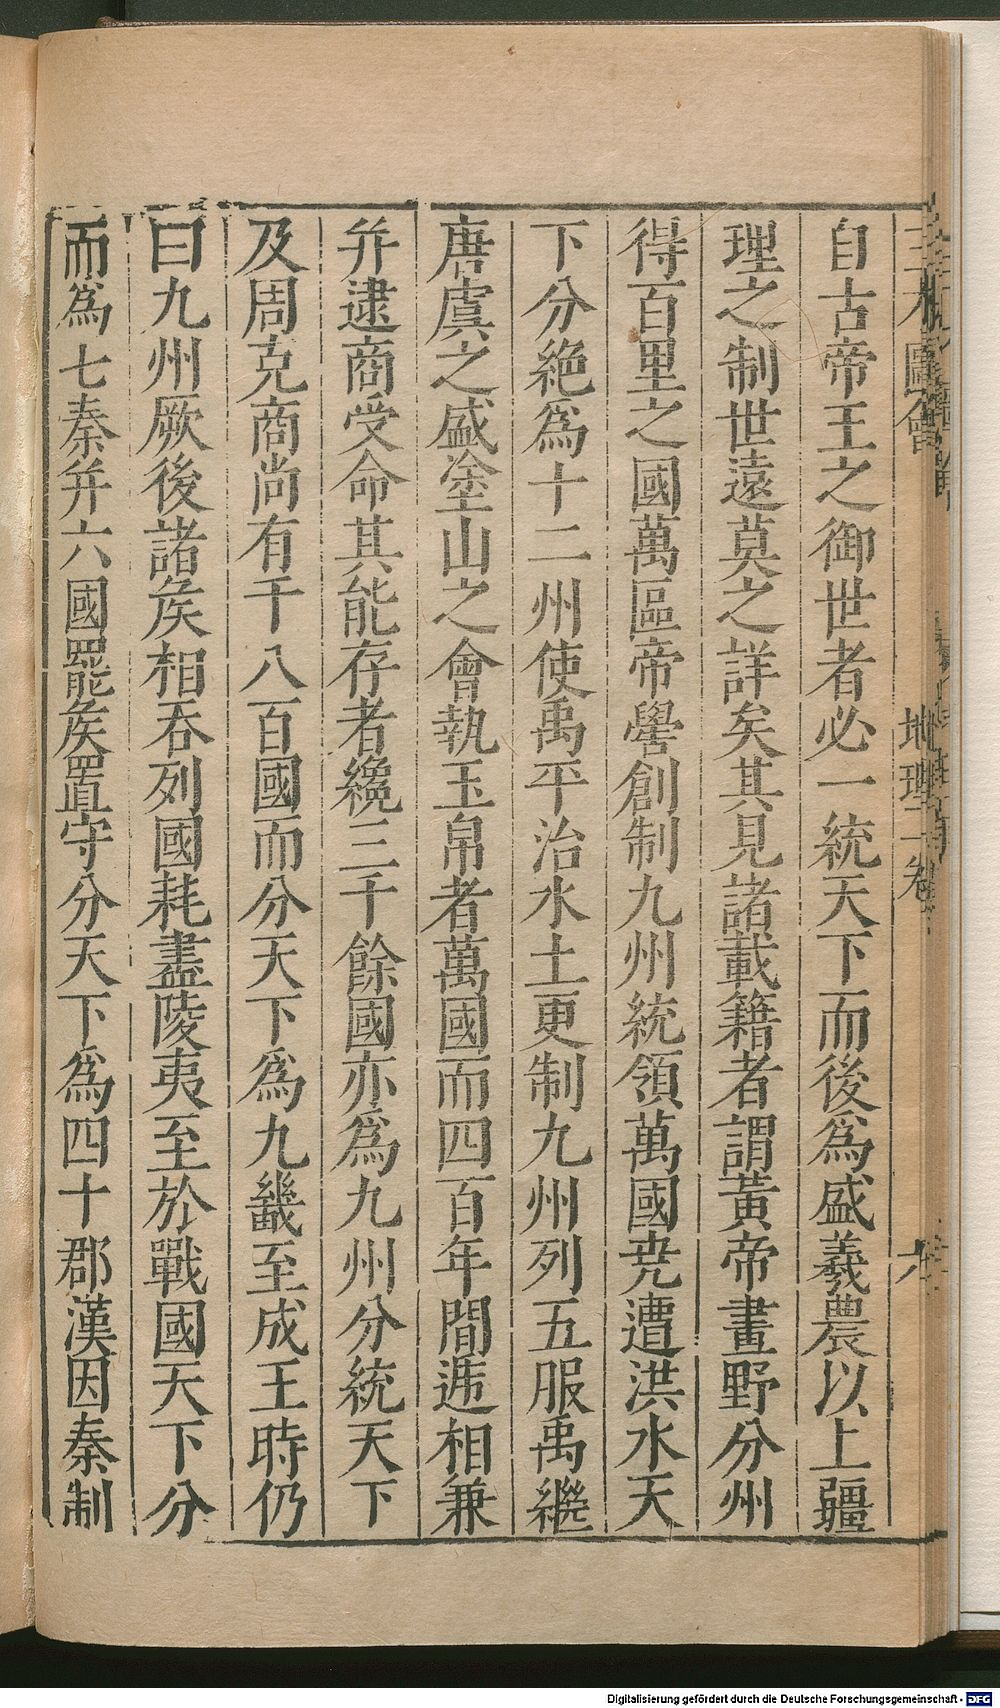 三才圖會
地理一卷
六
自古帝王之御世者必一統天下而後爲盛羲農以上疆
理之制世遠莫之詳矣其見諸載籍者謂黃帝畫野分州
得百里之國萬區帝嚳創制九州統領萬國尭遭洪水天
下分絶爲十二州使禹平治水土更制九州列五服禹繼
唐虞之盛塗山之會執玉帛者萬國而四百年間遞相兼
并逮商受命其能存者纔三千餘國亦爲九州分統天下
及周克商尚有千八百國而分天下爲九畿至成王時仍
曰九州厥後諸矦相吞列國耗盡陵夷至於戰國天下分
而爲七秦并六國罷矦置守分天下爲四十郡漢因秦制
Digitalisierung gefördert durch die Deutsche Forschungsgemeinschaft - DFG